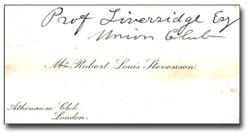 Prof Liversidge Esq
Union Club
Mr. Robert Louis Stevenson.
Athenaeum Club,
London.